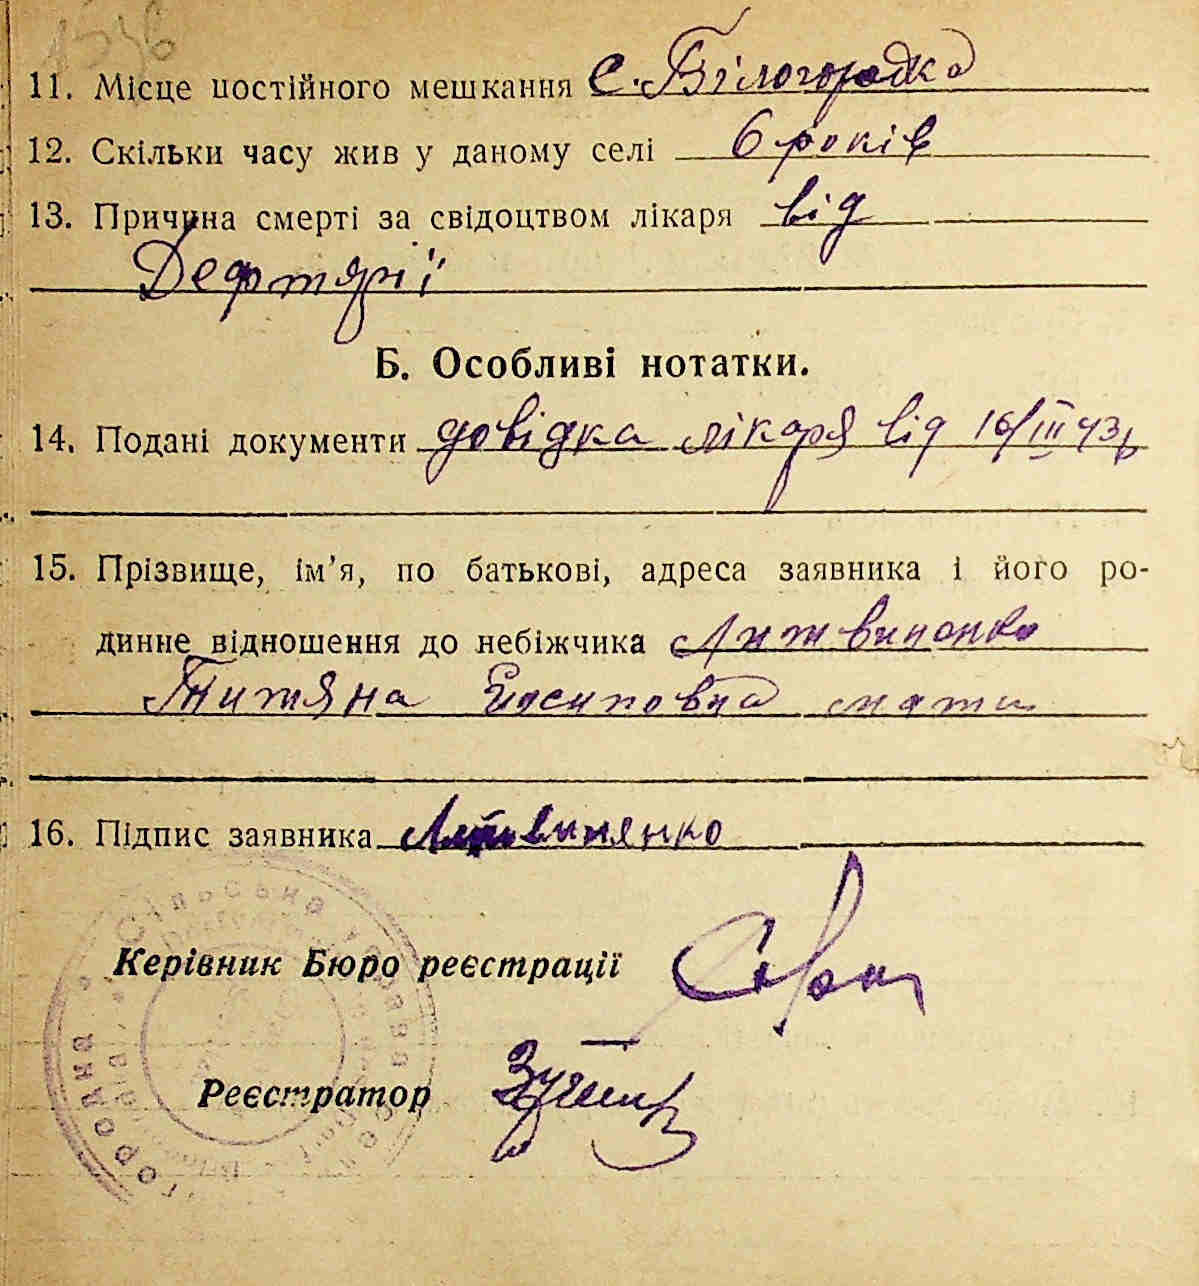 1546
11. Місце постійного мешкання С. Білогородка
12. Скільки часу жив у даному селі 6 років
13. Причина смерті за свідоцтвом лікаря від
Дефтярії
Б. Особливі нотатки.
14. Подані документи довідка лікаря від 16/III 43р
15. Прізвище, ім’я, по батькові, адреса заявника і його ро-
динне відношення до небіжчика Литвинонко
Титяна Йосиповна мати
16. Підпис заявника Литвинянко
Сільська управа
Керівник Бюро реєстрації
Реєстратор